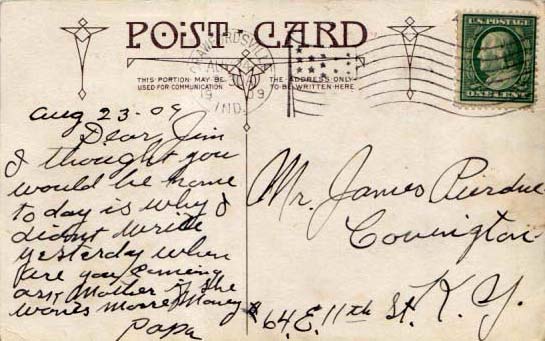 POST CARD
THIS PORTION MAY BE
USED FOR COMMUNICATION
THE ADDRESS ONLY
TO BE WRITTEN HERE
CRAWFORDSVILLE
IND.
U.S. POSTAGE
ONE CENT
Aug 23-09
Dear Jim
I thought you
would be home
to day is why I
didnt write
yesterday when
are you coming
ask Mother if she
wants Morre Money
Papa
Mr. James Purdue
Covington
64 E. 11th St. K.Y.